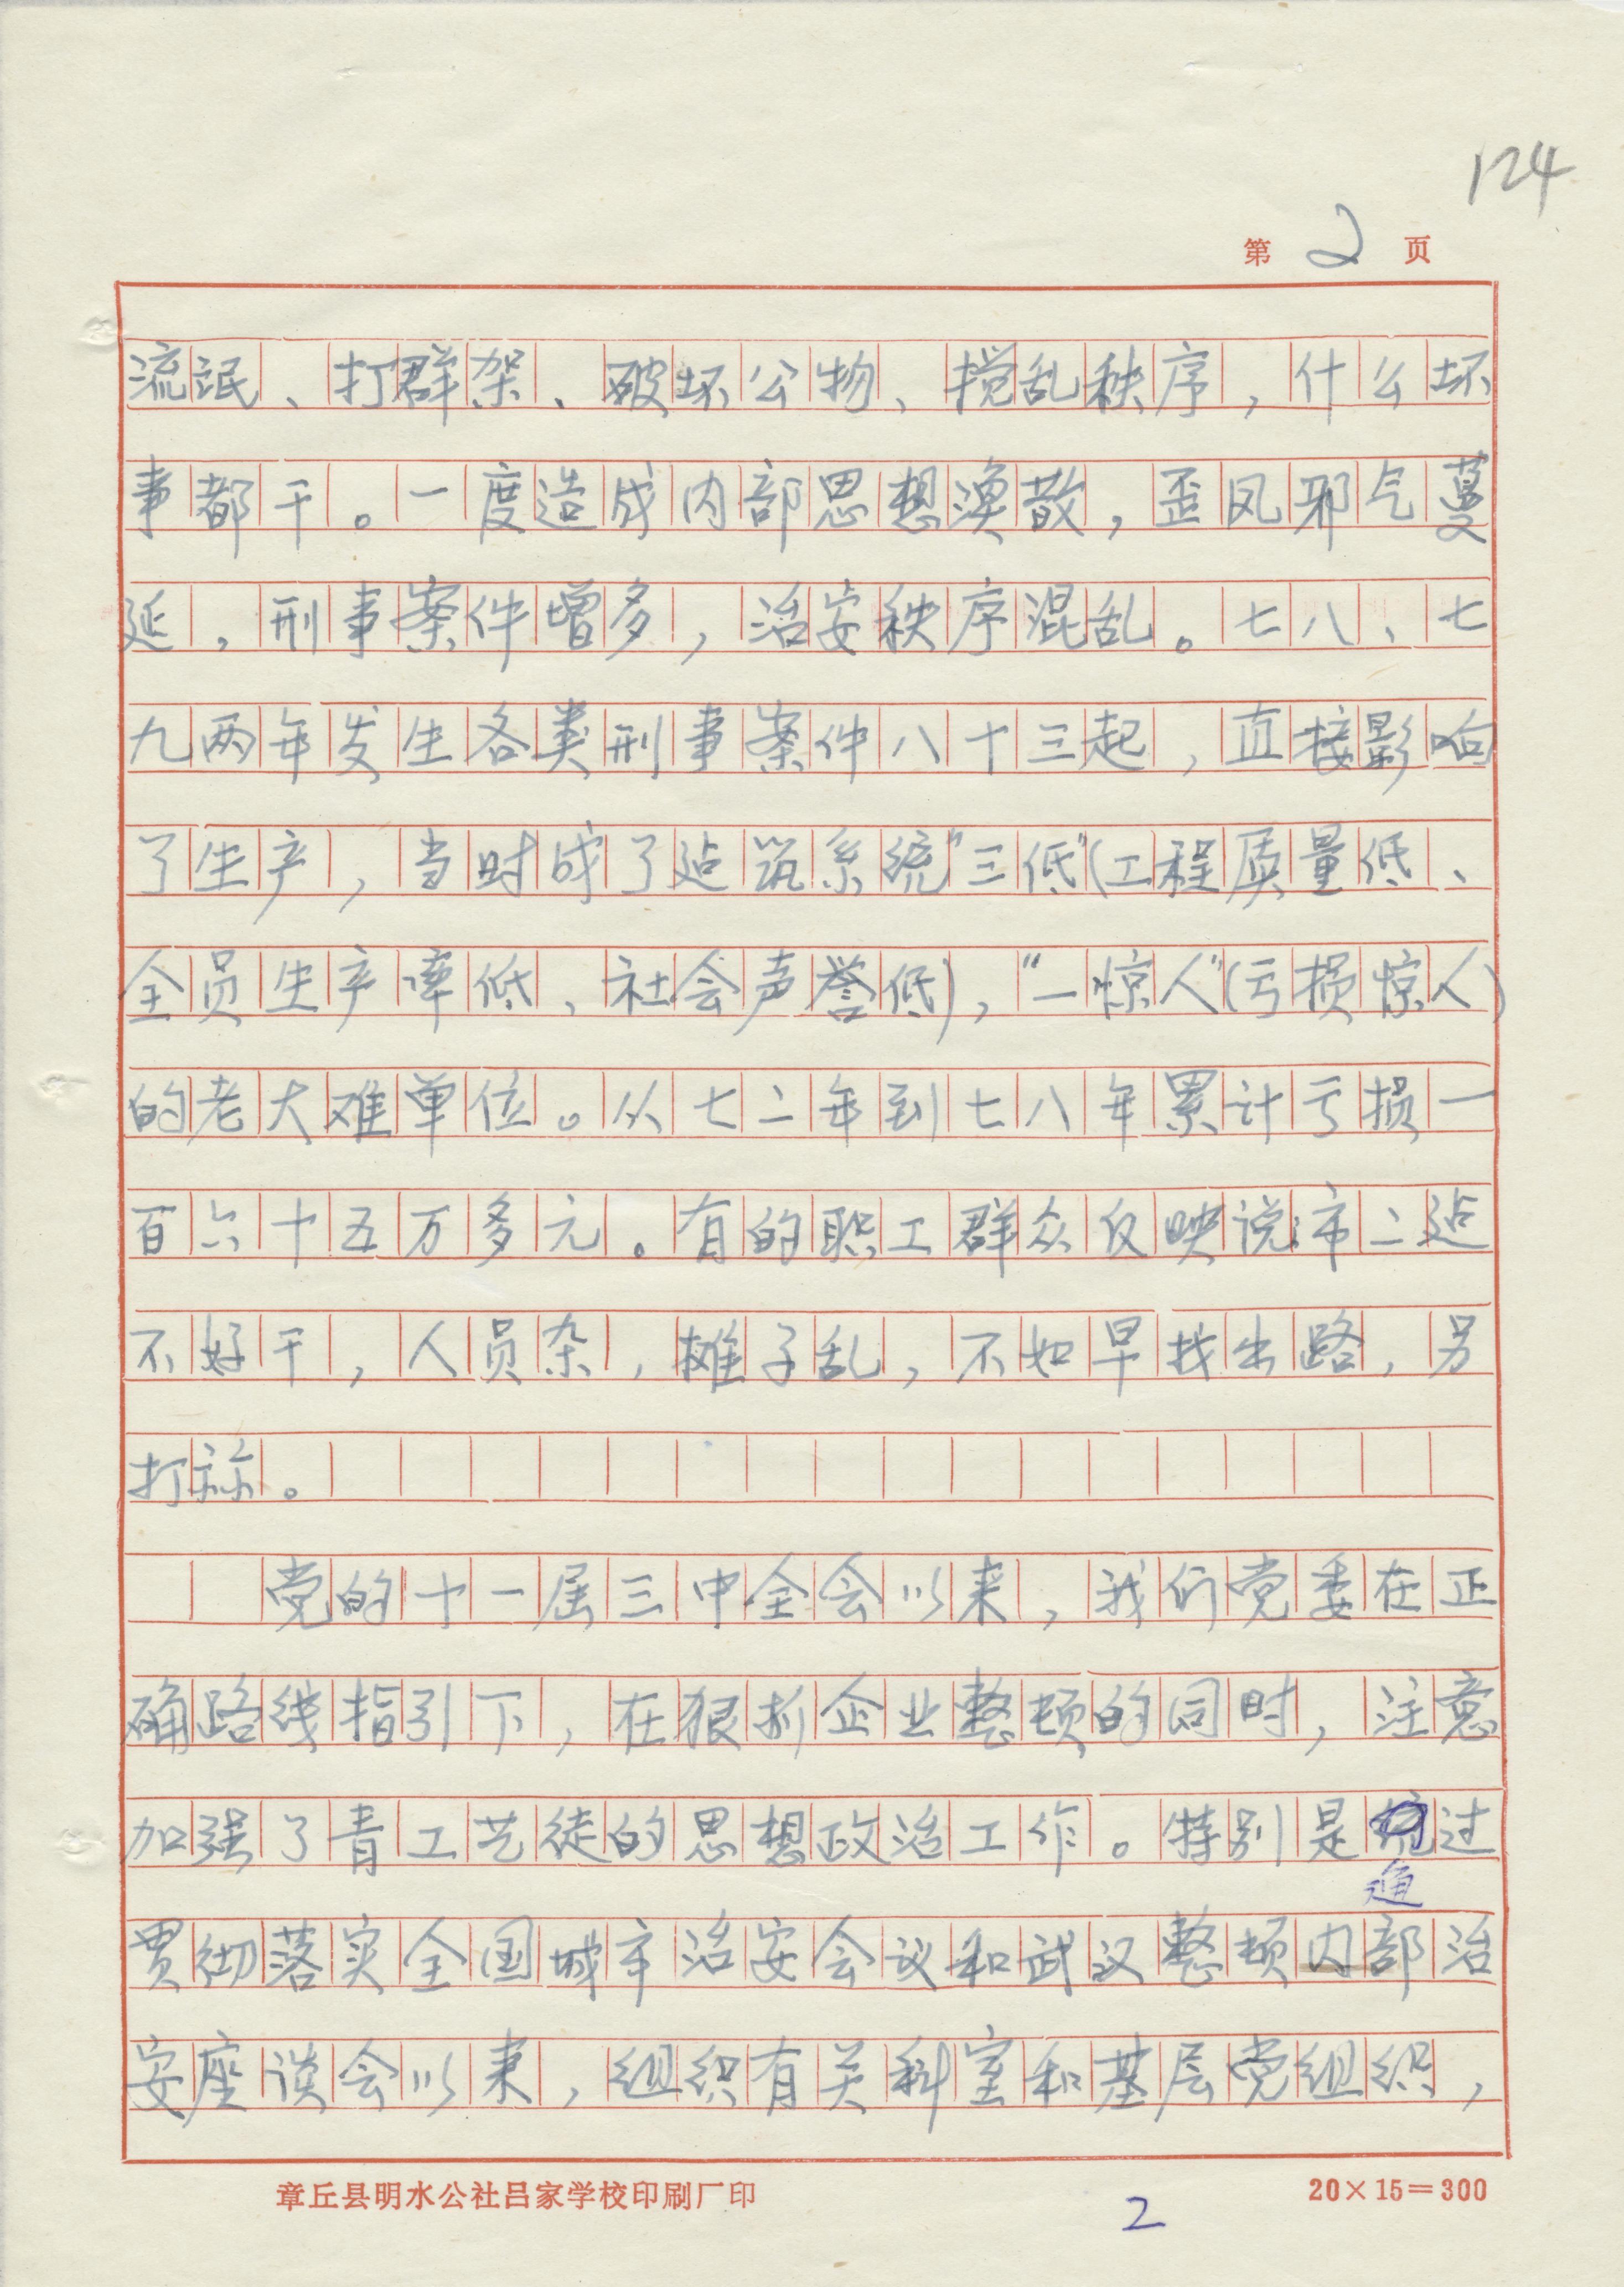 124
第 2 页
流氓、打群架、破坏公物、搅乱秩序,什么坏
事都干。一度造成内部思想涣散,歪风邪气蔓
延,刑事案件增多,治安秩序混乱。七八、七
九两年发生各类刑事案件八十三起,直接影响
了生产,当时成了建筑系统“三低”(工程质量低、
全员生产率低、社会声誉低),“一惊人”(亏损惊人)
的老大难单位。从七二年到七八年累计亏损一
百六十五万多元。有的职工群众反映说:市二建
不好干,人员杂,摊子乱,不如早找出路,另
打。
党的十一届三中全会以来,我们党委在正
确路线指引下,在狠抓企业整顿的同时,注意
加强了青工艺徒的思想政治工作。特别是通过
贯彻落实全国城市治安会议和武汉整顿内部治
安座谈会以来,组织有关科室和基层党组织,
章丘县明水公社吕家学校印刷厂印 2 20×15=300